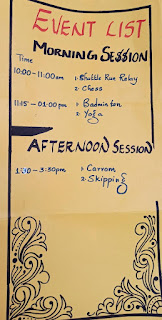 EVENT LIST
MORNING SESSION
Time
10:00-11:00 am 1. Shuttle Run Relay
2. Chess
11:15 - 01:00 pm 1. Badminton
2. Yoga
AFTERNOON SESSION
- 3:30pm 1. Carrom
2. Skipping